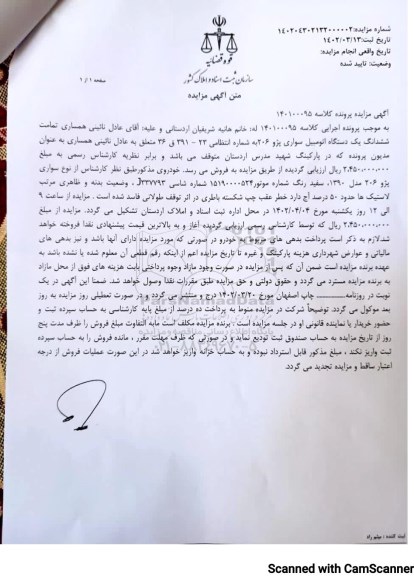 شماره مزایده:۱۴۰۲۰۴۳۰۲۱۳۲۰۰۰۰۰۲
تاریخ ثبت:۱۴۰۲/۰۳/۱۳
تاریخ واقعی انجام مزایده:
وضعیت: تایید شده
قوه قضائیه
سازمان ثبت اسناد و املاک کشور
صفحه ۱ / ۱
متن آگهی مزایده
آگهی مزایده پرونده کلاسه ۱۴۰۱۰۰۰۹۵
به موجب پرونده اجرایی کلاسه ۱۴۰۱۰۰۰۹۵ له: خانم هانیه شریفیان اردستانی و علیه: آقای عادل نائینی همساری تمامت
ششدانگ یک دستگاه اتومبیل سواری پژو ۲۰۶به شماره انتظامی ۲۳ – ۳۹۱ ق ۳۶ متعلق به عادل نائینی همساری به عنوان
مدیون پرونده که در پارکینگ شهید مدرس اردستان متوقف می باشد و برابر نظریه کارشناس رسمی به مبلغ
۲،۴۵۰،۰۰۰،۰۰۰ ریال ارزیابی گردیده از طریق مزایده به فروش می رسد. خودروی مذکورطبق نظر کارشناس از نوع سواری
پژو ۲۰۶ مدل ۱۳۹۰، سفید رنگ شماره موتور۱۵۱۹۰۰۰۰۵۲۴ شماره شاسی J۳۳۷۷۹۳ ، وضعیت بدنه و ظاهری مرتب
لاستیک ها حدود ۵۰ درصد آج دارد خطر عقب چپ شکسته باطری در اثر توقف طولانی فاسد شده است . مزایده از ساعت ۹
الی ۱۲ روز یکشنبه مورخ ۱۴۰۲/۰۴/۰۴ در محل اداره ثبت اسناد و املاک اردستان تشکیل می گردد. مزایده از مبلغ
۲،۴۵۰،۰۰۰،۰۰۰ ریال که توسط کارشناس رسمی ارزیابی گردیده آغاز و به بالاترین قیمت پیشنهادی نقدا فروخته خواهد
شد.لازم به ذکر است پرداخت بدهی های مربوط به خودرو در صورتی که مورد مزایده دارای آنها باشد و نیز بدهی های
مالیاتی و عوارض شهرداری هزینه پارکینگ و غیره تا تاریخ مزایده اعم از اینکه رقم قطعی آن معلوم شده یا نشده باشد به
عهده برنده مزایده است ضمن آن که پس از مزایده در صورت وجود مازاد وجوه پرداختی بابت هزینه های فوق از محل مازاد
به برنده مزایده مسترد می گردد و حقوق دولتی و حق مزایده طبق مقررات نقدا وصول خواهد شد. ضمنا این آگهی در یک
نوبت در روزنامه............ چاپ اصفهان مورخ ۱۴۰۲/۰۳/۲۰ درج و منتشر می گردد و در صورت تعطیلی روز مزایده به روز
بعد موکول می گردد. توضیحاً شرکت در مزایده منوط به پرداخت ده درصد از مبلغ پایه کارشناسی به حساب سپرده ثبت و
حضور خریدار یا نماینده قانونی او در جلسه مزایده است . برنده مزایده مکلف است مابه التفاوت مبلغ فروش را ظرف مدت پنج
روز از تاریخ مزایده به حساب صندوق ثبت تودیع نماید و در صورتی که ظرف مهلت مقرر ، مانده فروش را به حساب سپرده
ثبت واریز نکند ، مبلغ مذکور قابل استرداد نبوده و به حساب خزانه واریز خواهد شد در این صورت عملیات فروش از درجه
اعتبار ساقط و مزایده تجدید می گردد.
ثبت کننده : میثم راه
Scanned with CamScanner